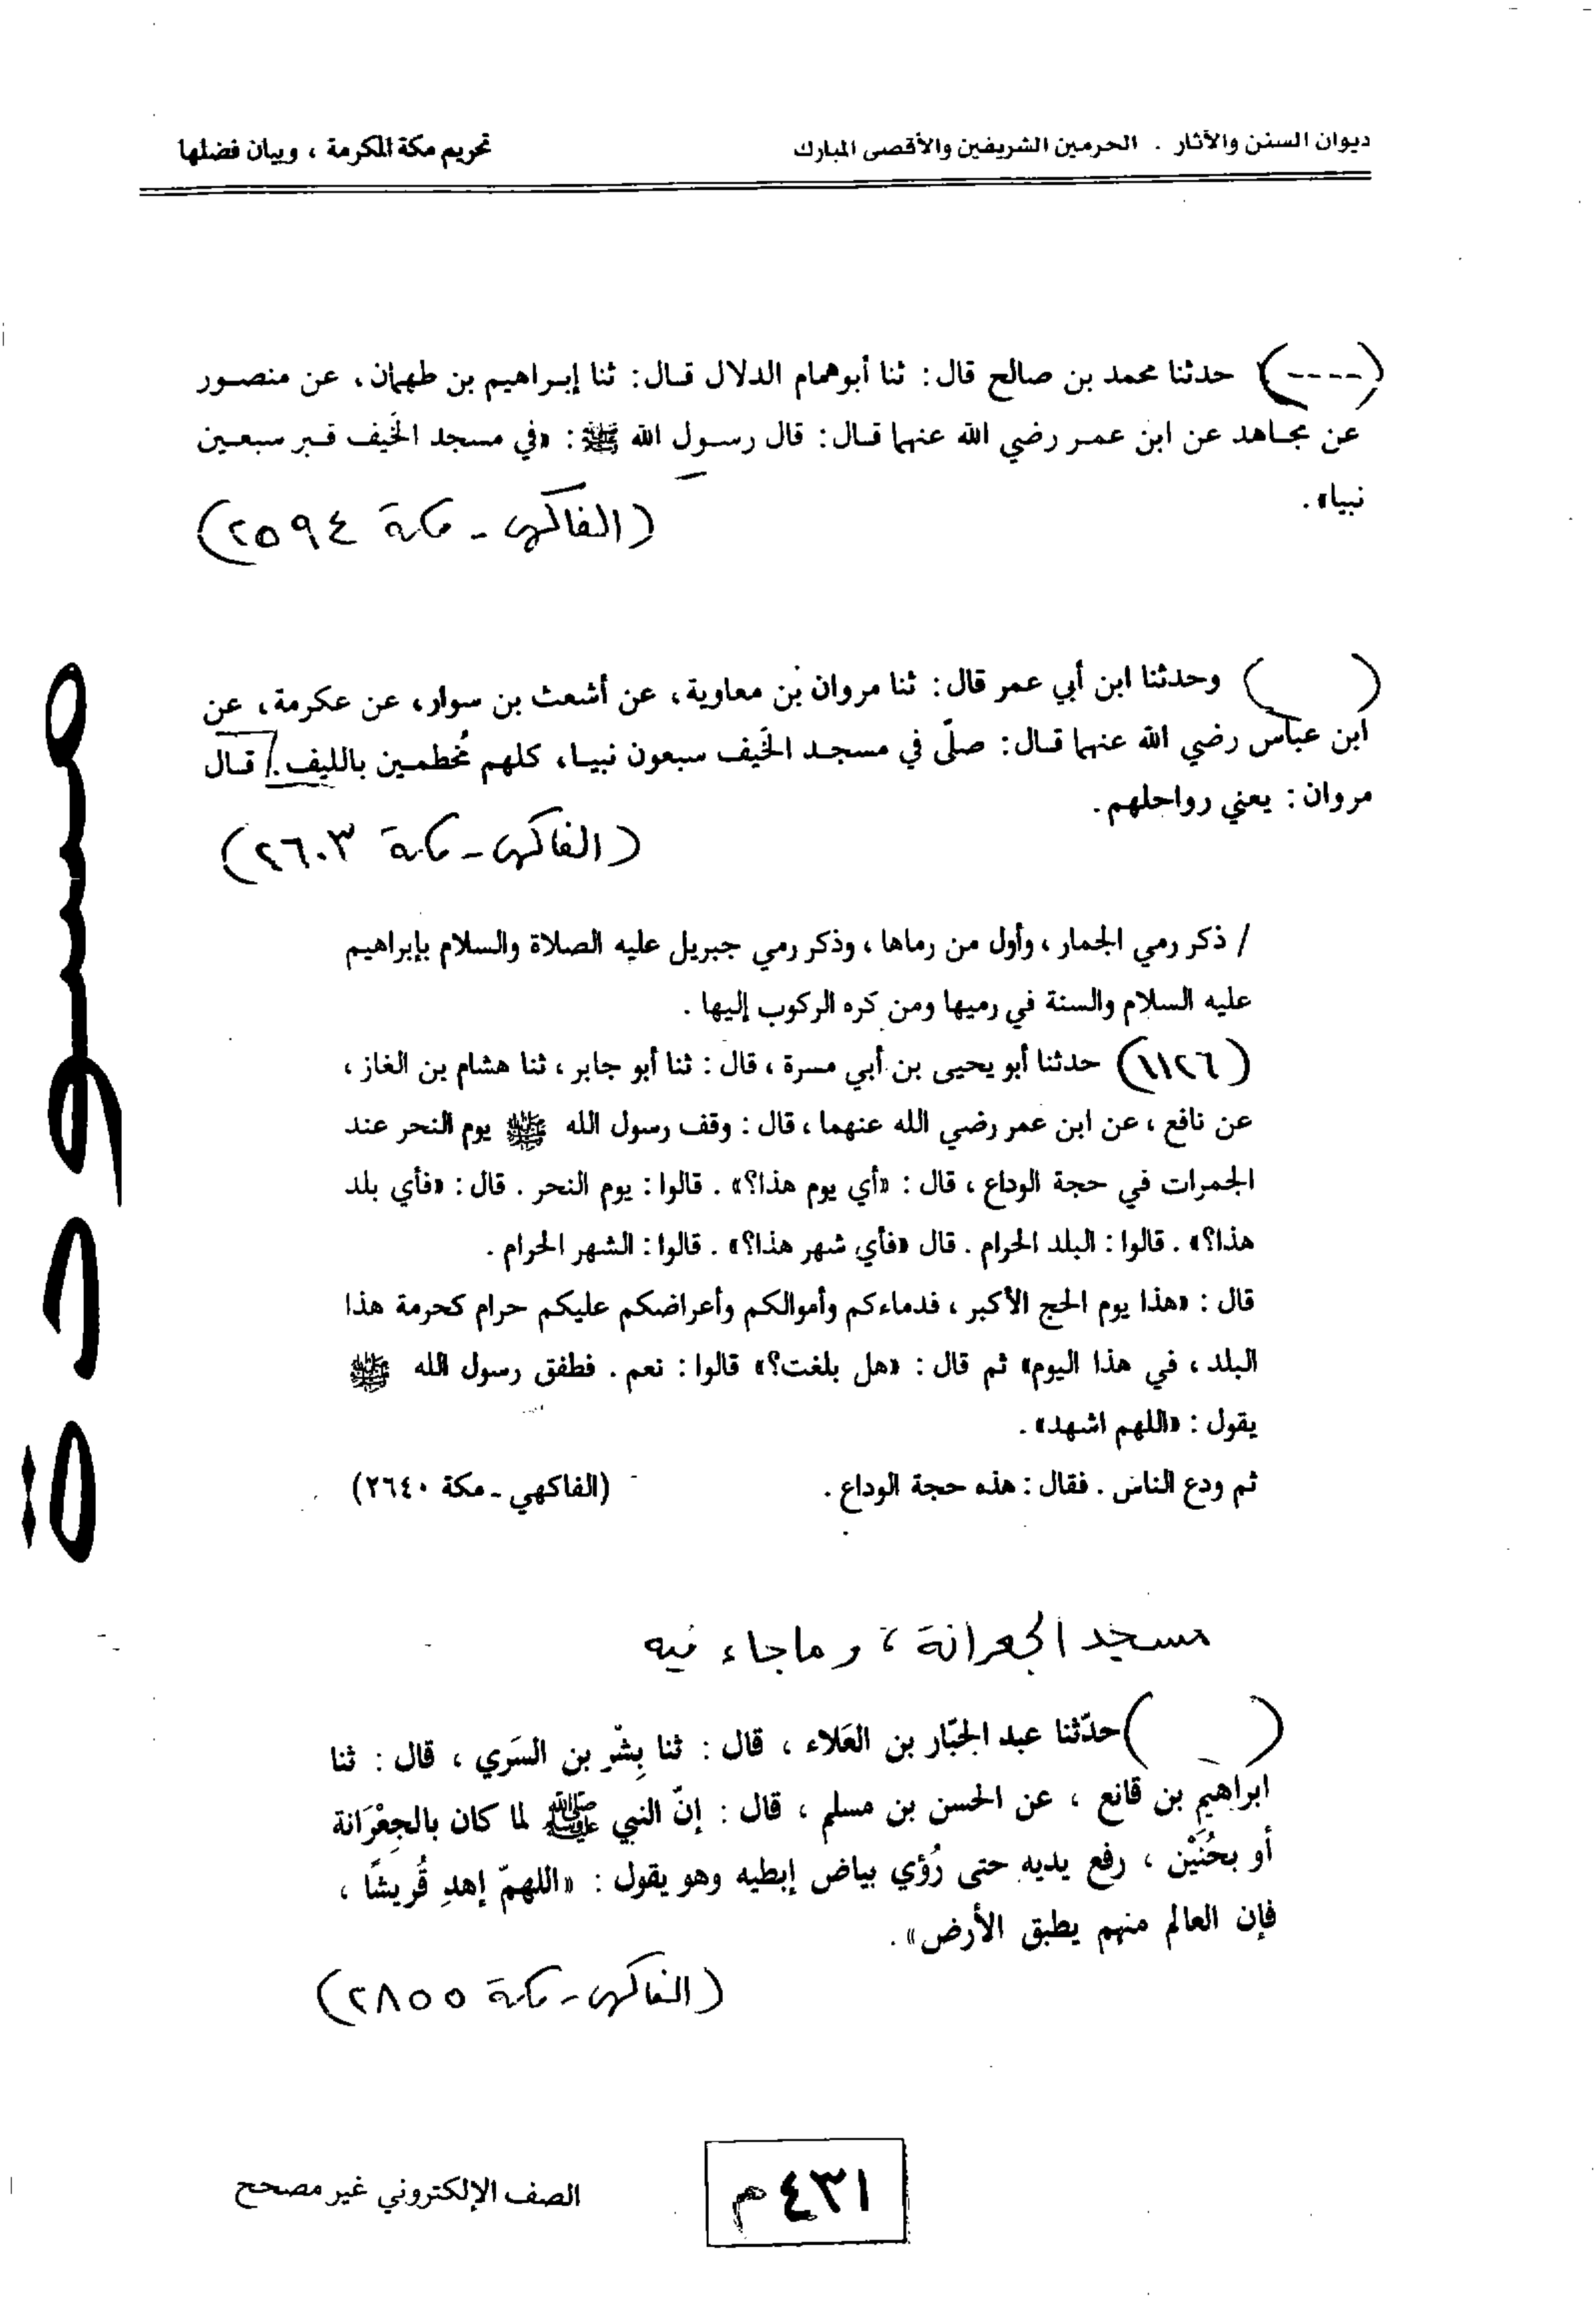 ديوان السنن والآثار . الحرمين الشريفين والأقصى المبارك
تحريم مكة المكرمة ، وبيان فضلها
(----) حدثنا محمد بن صالح قال: ثنا أبوهمام الدلال قال: ثنا إبراهيم بن طهمان، عن منصور
عن مجاهد عن ابن عمر رضي الله عنهما قال: قال رسول الله ﷺ: «في مسجد الخَيف قبر سبعين
نبيا».
(الفاكهي - مكة ٢٥٩٤)
( ) وحدثنا ابن أبي عمر قال: ثنا مروان بن معاوية، عن أشعث بن سوار، عن عكرمة، عن
ابن عباس رضي الله عنهما قال: صلّى في مسجد الخَيف سبعون نبيا، كلهم مُخطمين بالليف. / قال
مروان: يعني رواحلهم.
(الفاكهي - مكة ٢٦٠٣)
/ ذكر رمي الجمار ، وأول من رماها ، وذكر رمي جبريل عليه الصلاة والسلام بإبراهيم
عليه السلام والسنة في رميها ومن كره الركوب إليها .
(١١٢٦) حدثنا أبو يحيى بن أبي مسرة ، قال : ثنا أبو جابر ، ثنا هشام بن الغاز ،
عن نافع ، عن ابن عمر رضي الله عنهما ، قال : وقف رسول الله ﷺ يوم النحر عند
الجمرات في حجة الوداع ، قال : «أي يوم هذا؟» . قالوا : يوم النحر . قال : «فأي بلد
هذا؟» . قالوا : البلد الحرام . قال «فأي شهر هذا؟» . قالوا : الشهر الحرام .
قال : «هذا يوم الحج الأكبر ، فدماءكم وأموالكم وأعراضكم عليكم حرام كحرمة هذا
البلد ، في هذا اليوم» ثم قال : «هل بلغت؟» قالوا : نعم . فطفق رسول الله ﷺ
يقول : «اللهم اشهد» .
ثم ودع الناس . فقال : هذه حجة الوداع . (الفاكهي - مكة ٢٦٤٠)
مسجد الجعرانة ، وماجاء فيه
( ) حدّثنا عبد الجبّار بن العَلاء ، قال : ثنا بِشْر بن السَري ، قال : ثنا
ابراهيم بن قانع ، عن الحسن بن مسلم ، قال : إنّ النبي ﷺ لما كان بالجِعْرَانة
أو بحُنَيْن ، رفع يديه حتى رُؤي بياض إبطيه وهو يقول : «اللهمّ إهدِ قُريشًا ،
فإن العالم منهم يطبق الأرض» .
(الفاكهي - مكة ٢٨٥٥)
٤٣١ م
الصف الإلكتروني غير مصحح
مسودة